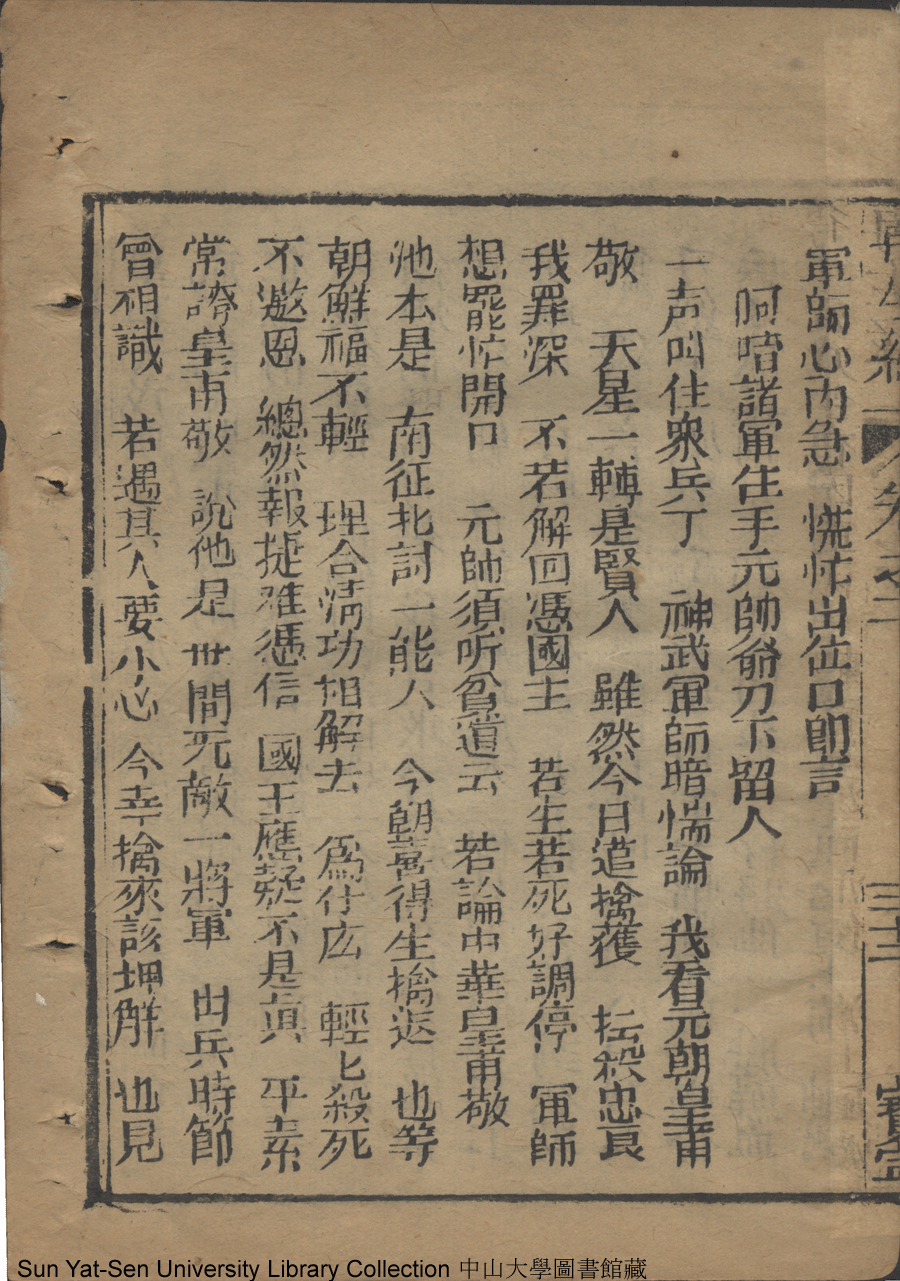 軍師心內急 慌忙出位口卽言
呵唔諸軍住手元帥爺刀下留人
一声叫住衆兵丁 神武軍師暗惴論 我看元朝皇甫
敬 天星一轉是賢人 雖然今日遭擒獲 抂殺忠良
我罪深 不若解回憑國主 若生若死好調停 軍師
想罷忙開口 元帥須听貧道云 若論中華皇甫敬
他本是 南征北討一能人 今朝喜得生擒返 也等
朝鮮福不輕 理合淸功相解去 爲什庅 輕匕殺死
不邀恩 總然報捷难憑信 國王應疑不是真 平素
常誇皇甫敬 說他是 世間无敵一將軍 出兵時節
曾相識 若遇其人要小心 今幸擒來該押解 也見
卷之二
三十二
Sun Yat-Sen University Library Collection 中山大學圖書館藏